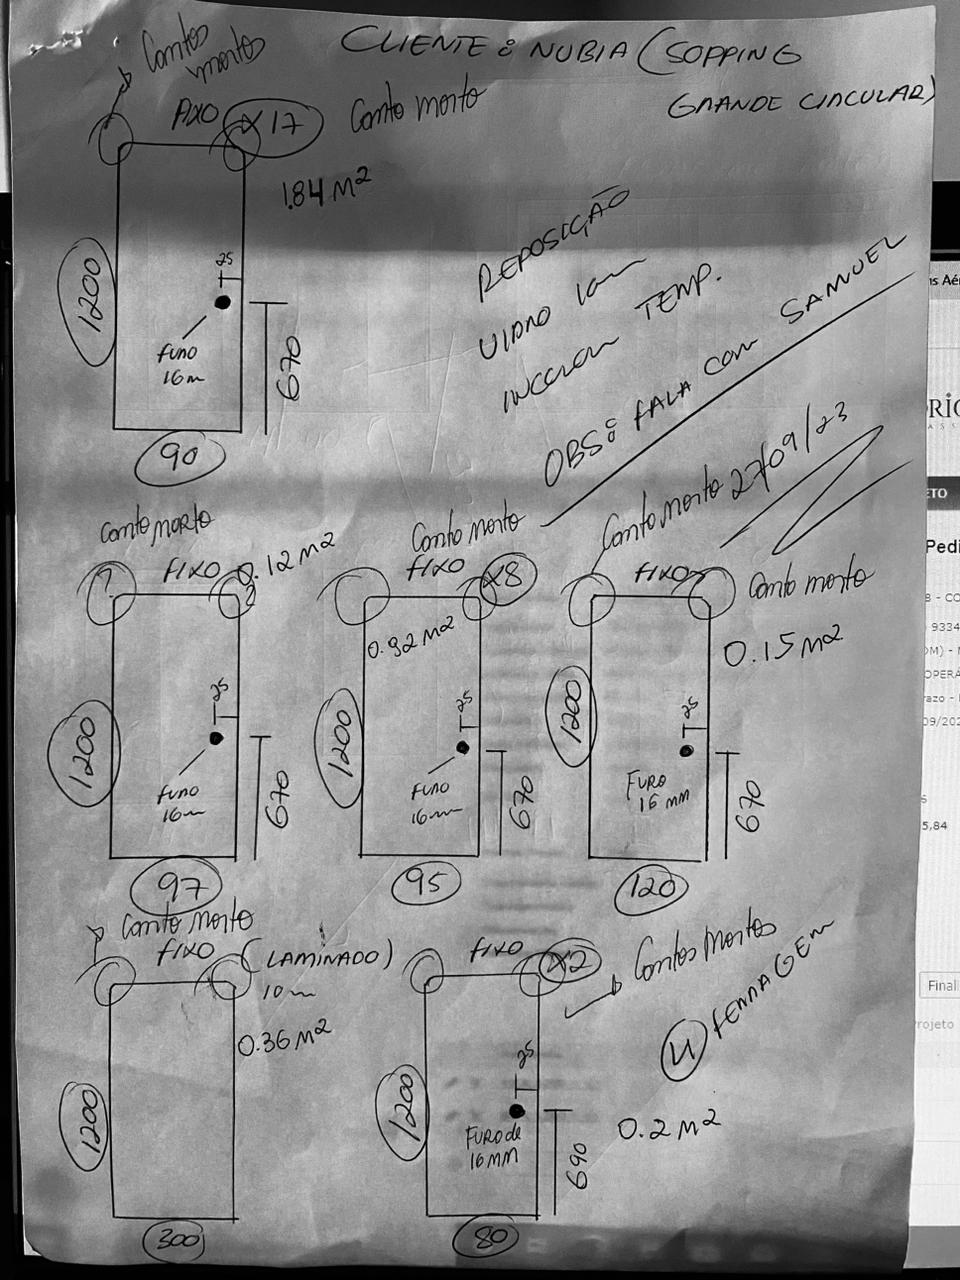 CLIENTE: NUBIA (SOPPING
GRANDE CIRCULAR)
Cantos
mortos
FIXO
X17
Canto morto
1.84 M²
1200
25
furo
16m
670
90
REPOSIÇÃO
VIDRO 10m
INCOLOR TEMP.
OBS: FALA COM SAMUEL
27/09/23
Canto morto
FIXO
0.12 M²
1200
25
furo
16m
670
97
Canto morto
FIXO
X8
0.92 M²
1200
25
furo
16m
670
95
Canto morto
FIXO
Canto morto
0.15 M²
1200
25
FURO
16 MM
670
120
Canto morto
FIXO (LAMINADO)
10m
0.36 M²
1200
300
FIXO
X2
Cantos mortos
1200
25
FURO de
16MM
690
80
0.2 M²
FERRAGEM
ETO
Pedi
9334
OPERÁ
5,84
Final
rojeto